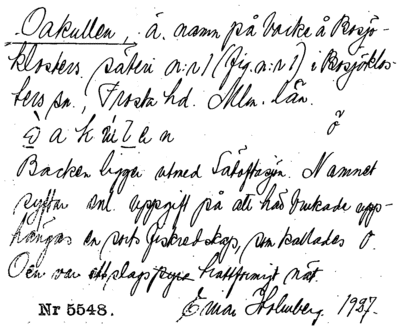 Oakullen, ä. namn på backe å Bosjö-
klosters säteri n:r 1 (fig. n:r 1) i Bosjöklos-
ters sn., Frosta hd. Mlm. län.
Backen ligger utmed Sätoftasjön. Namnet
syftar enl. uppgift på att här brukade upp-
hängas en sorts fiskredskap, som kallades o.
Oen var ett slags hattformigt nät.
Nr 5548. Einar Holmberg. 1927.